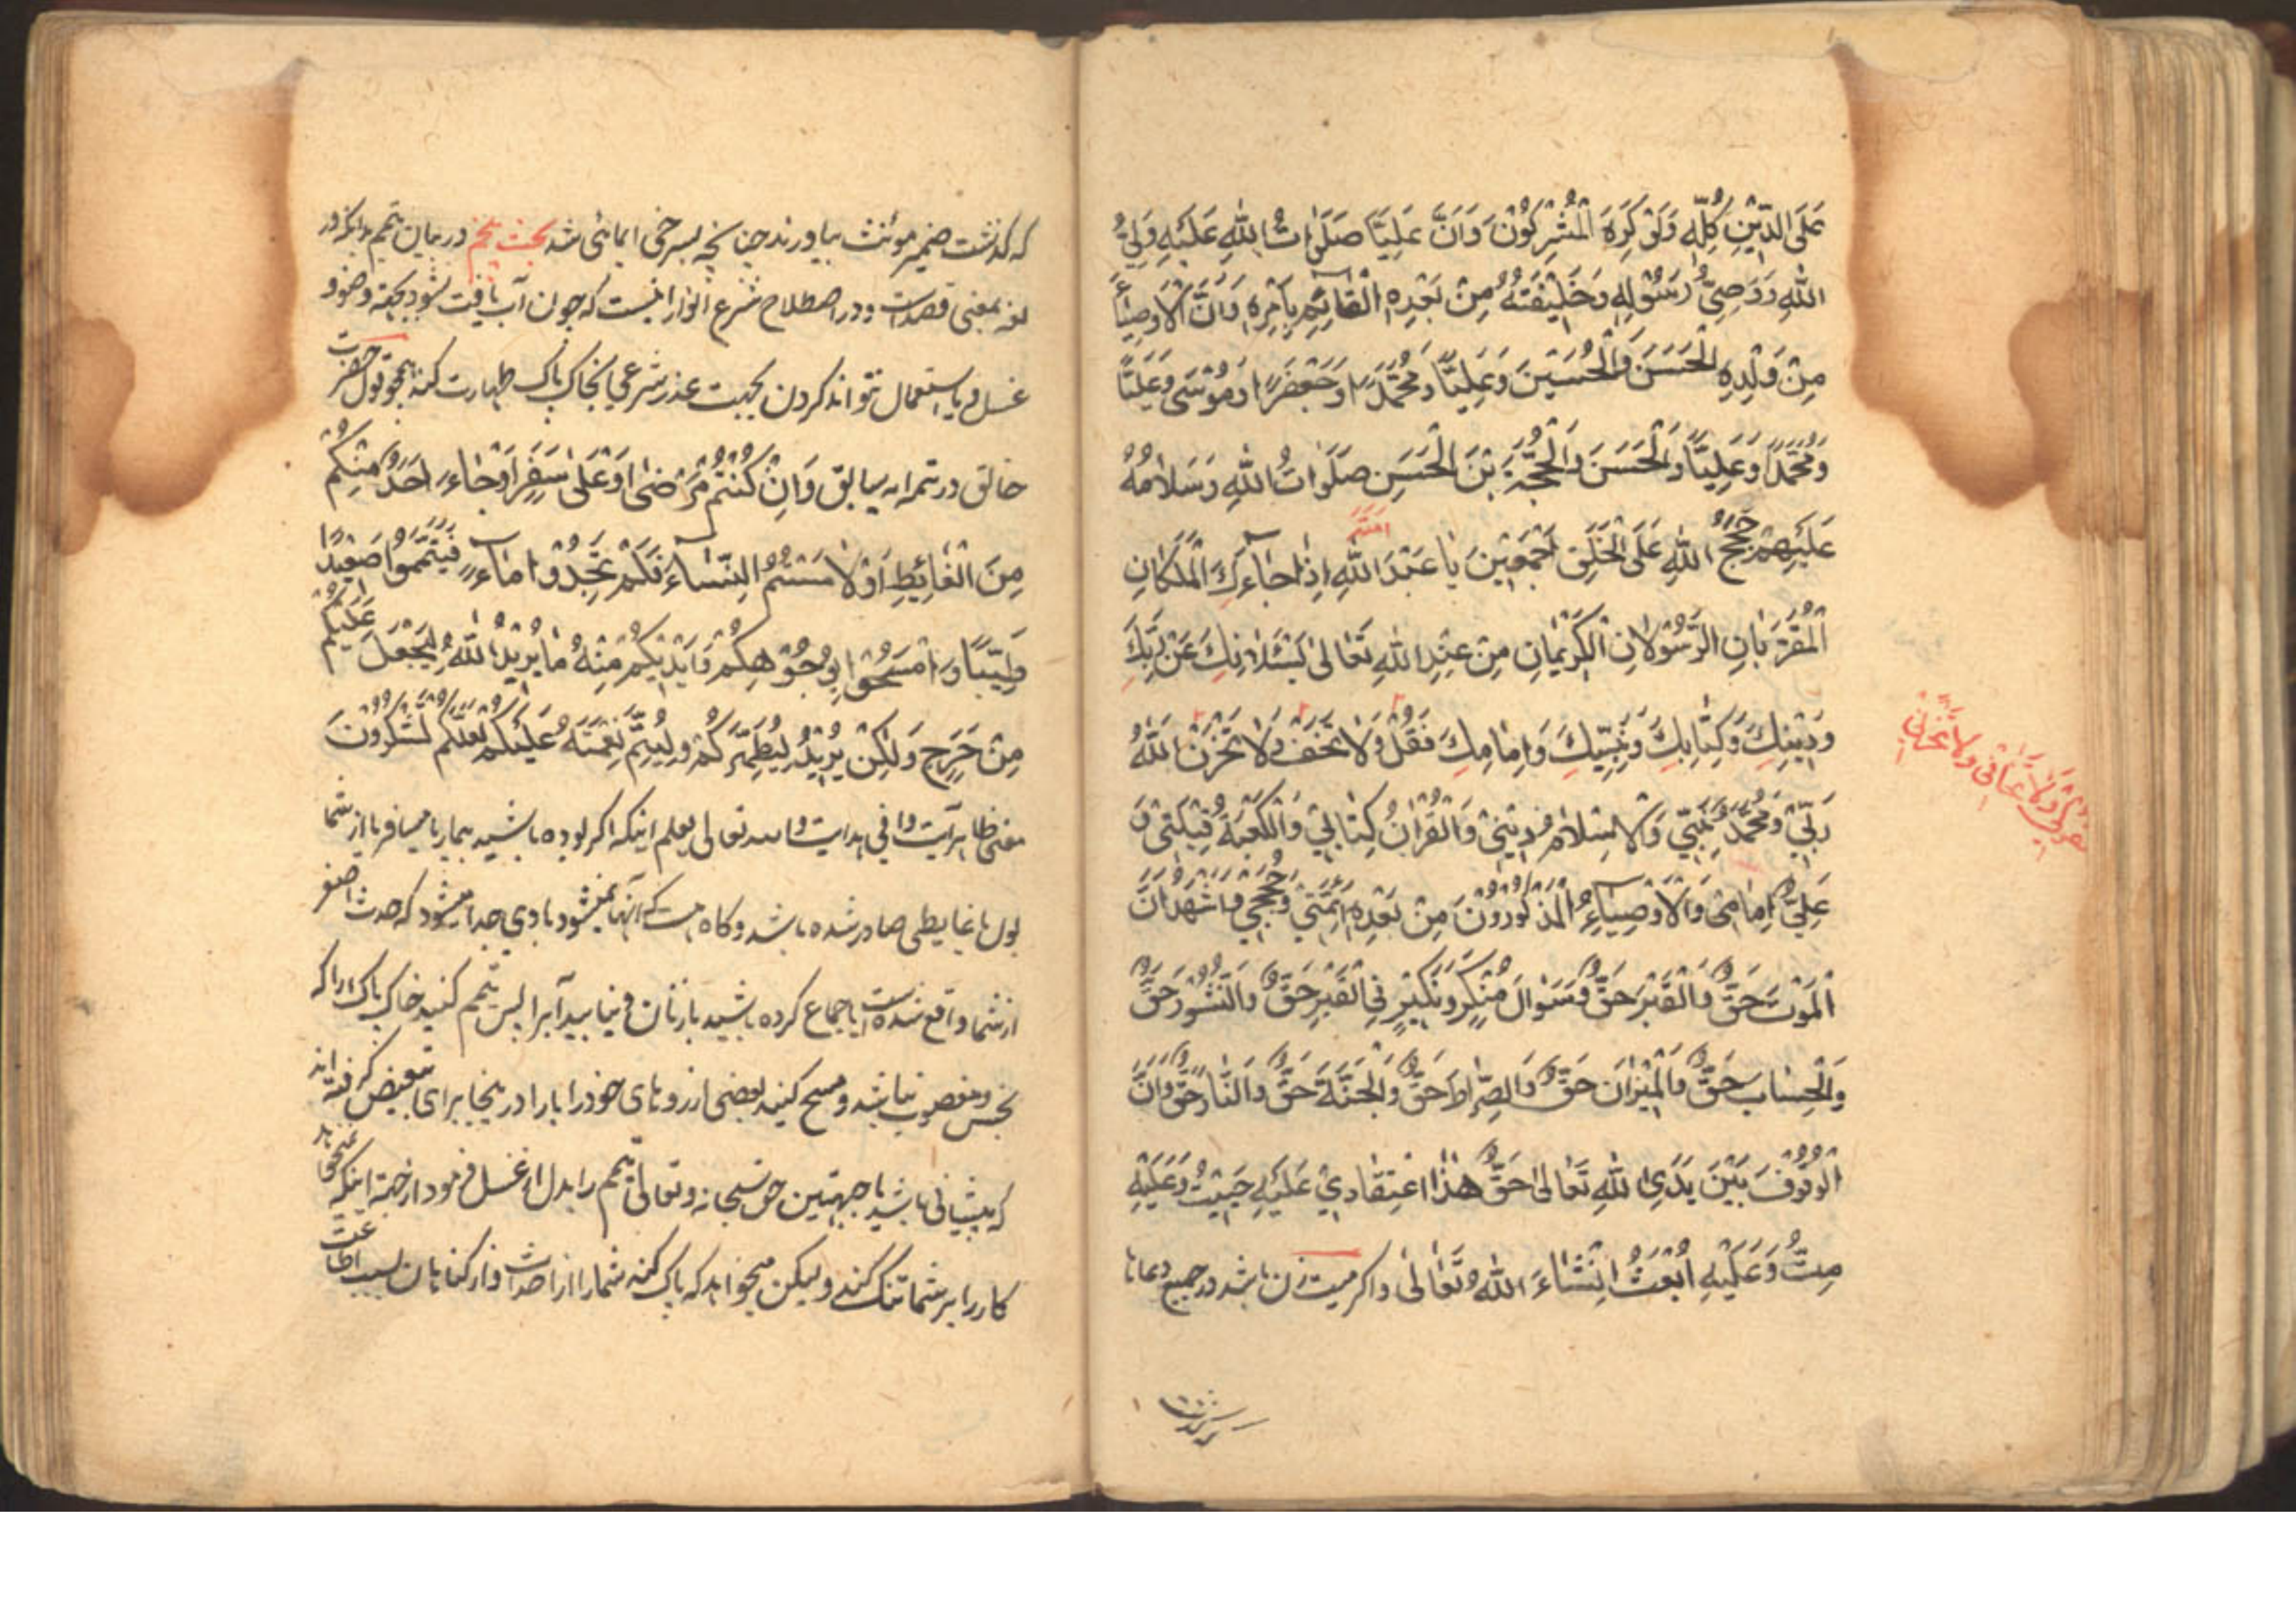 عَلَى الدِّيْنِ كُلِّهِ وَلَوْ كَرِهَ الْمُشْرِكُوْنَ وَاَنَّ عَلِيًّا صَلَوٰاتُ اللّٰهِ عَلَيْهِ وَلِيُّ
اللّٰهِ وَوَصِيُّ رَسُوْلِهِ وَخَلِيْفَتُهُ مِنْ بَعْدِهِ الْقٰائِمُ بِاَمْرِهِ وَاَنَّ الْاَوْصِيٰاءَ
مِنْ وَلَدِهِ الْحَسَنَ وَالْحُسَيْنَ وَعَلِيًّا وَمُحَمَّدًا وَجَعْفَرًا وَمُوْسٰى وَعَلِيًّا
وَمُحَمَّدًا وَعَلِيًّا وَالْحَسَنَ وَالْحُجَّةَ بْنَ الْحَسَنِ صَلَوٰاتُ اللّٰهِ وَسَلٰامُهُ
عَلَيْهِمْ حُجَجُ اللّٰهِ عَلَى الْخَلْقِ اَجْمَعِيْنَ يٰا عَبْدَ اللّٰهِ اِذٰا جٰاءَكَ الْمَلَكٰانِ
اَمَةَ
الْمُقَرَّبٰانِ الرَّسُوْلٰانِ الْكَرِيْمٰانِ مِنْ عِنْدِ اللّٰهِ تَعٰالىٰ يَسْئَلٰانِكَ عَنْ رَبِّكَ
وَدِيْنِكَ وَكِتٰابِكَ وَنَبِيِّكَ وَاِمٰامِكَ فَقُلْ وَلٰا تَخَفْ وَلٰا تَحْزَنْ اَللّٰهُ
قولي ولا تخافي ولا تحزني
رَبِّيْ وَمُحَمَّدٌ نَبِيِّيْ وَالْاِسْلٰامُ دِيْنِيْ وَالْقُرْاٰنُ كِتٰابِيْ وَالْكَعْبَةُ قِبْلَتِيْ وَ
عَلِيٌّ اِمٰامِيْ وَالْاَوْصِيٰاءُ الْمَذْكُوْرُوْنَ مِنْ بَعْدِهِ اَئِمَّتِيْ وَحُجَجِيْ وَاَشْهَدُ اَنَّ
الْمَوْتَ حَقٌّ وَالْقَبْرَ حَقٌّ وَسُوَالَ مُنْكَرٍ وَنَكِيْرٍ فِي الْقَبْرِ حَقٌّ وَالنُّشُوْرَ حَقٌّ
وَالْحِسٰابَ حَقٌّ وَالْمِيْزٰانَ حَقٌّ وَالصِّرٰاطَ حَقٌّ وَالْجَنَّةَ حَقٌّ وَالنّٰارَ حَقٌّ وَاَنَّ
الْوُقُوْفَ بَيْنَ يَدَيِ اللّٰهِ تَعٰالىٰ حَقٌّ هٰذٰا اعْتِقٰادِيْ عَلَيْهِ حَيِيْتُ وَعَلَيْهِ
مِتُّ وَعَلَيْهِ اُبْعَثُ اِنْشٰاءَ اللّٰهُ تَعٰالىٰ واگر ميت زن باشد در جميع دعاها
كه گذشت ضمير مونث بياورند چنانچه بسرخى ايمائى شد بحث پنجم در بيان تيمم بدانكه در
لغة بمعنى قصدست ودر اصطلاح شرع انور آنست كه چون آب يافت نشود بجهة وضو و
غسل و يا استعمال نتواند كردن بجهت عذر شرعي بخاك پاك طهارت كند همچو قول حضرت
خالق در تتمه ايه سابق وَاِنْ كُنْتُمْ مَرْضٰى اَوْ عَلٰى سَفَرٍ اَوْ جٰاءَ اَحَدٌ مِنْكُمْ
مِنَ الْغٰائِطِ اَوْ لٰامَسْتُمُ النِّسٰاءَ فَلَمْ تَجِدُوْا مٰاءً فَتَيَمَّمُوْا صَعِيْدًا
طَيِّبًا وَامْسَحُوْا بِوُجُوْهِكُمْ وَاَيْدِيْكُمْ مِنْهُ مٰا يُرِيْدُ اللّٰهُ لِيَجْعَلَ عَلَيْكُمْ
مِنْ حَرَجٍ وَلٰكِنْ يُرِيْدُ لِيُطَهِّرَكُمْ وَلِيُتِمَّ نِعْمَتَهُ عَلَيْكُمْ لَعَلَّكُمْ تَشْكُرُوْنَ
معنى ظاهر آيت وافي هدايت والله تعالى يعلم اينكه اگر بوده باشيد بيمار يا مسافر يا از شما
بول يا غايطى صادر شده باشد وگاه هست كه از آنها نميشود بادي جدا ميشود كه حدث اصغر
از شما واقع شده است يا جماع كرده باشيد با زنان و نيابيد آبرا پس تيمم كنيد خاك پاك را كه
نجس ومغصوب نباشد ومسح كنيد بعضى از روهاى خود را با را در اينجا برای تبعيض گرفته اند
كه پيشانى باشد با جهتين حق سبحانه وتعالى تيمم را بدل از غسل فرمود از جهة اينكه نميخواهد
كار را بر شما تنگ كند وليكن ميخواهد كه پاك كند شما را از احداث و از گناهان بسبب اطاعت
كه گذشت